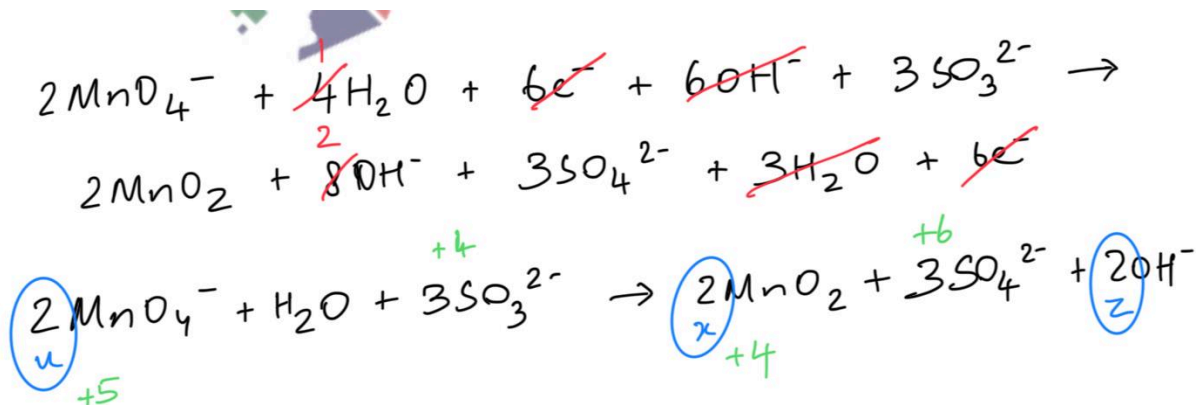 1
2MnO₄⁻ + 4H₂O + 6e⁻ + 6OH⁻ + 3SO₃²⁻ →
2
2MnO₂ + 8OH⁻ + 3SO₄²⁻ + 3H₂O + 6e⁻
+4 +6
2MnO₄⁻ + H₂O + 3SO₃²⁻ → 2MnO₂ + 3SO₄²⁻ + 2OH⁻
u x z
+5 +4